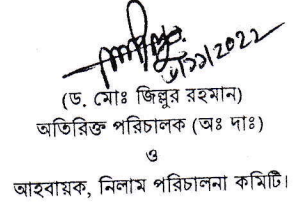 ৬/১১/২০২২
(ড. মোঃ জিল্লুর রহমান)
অতিরিক্ত পরিচালক (অঃ দাঃ)
ও
আহবায়ক, নিলাম পরিচালনা কমিটি।